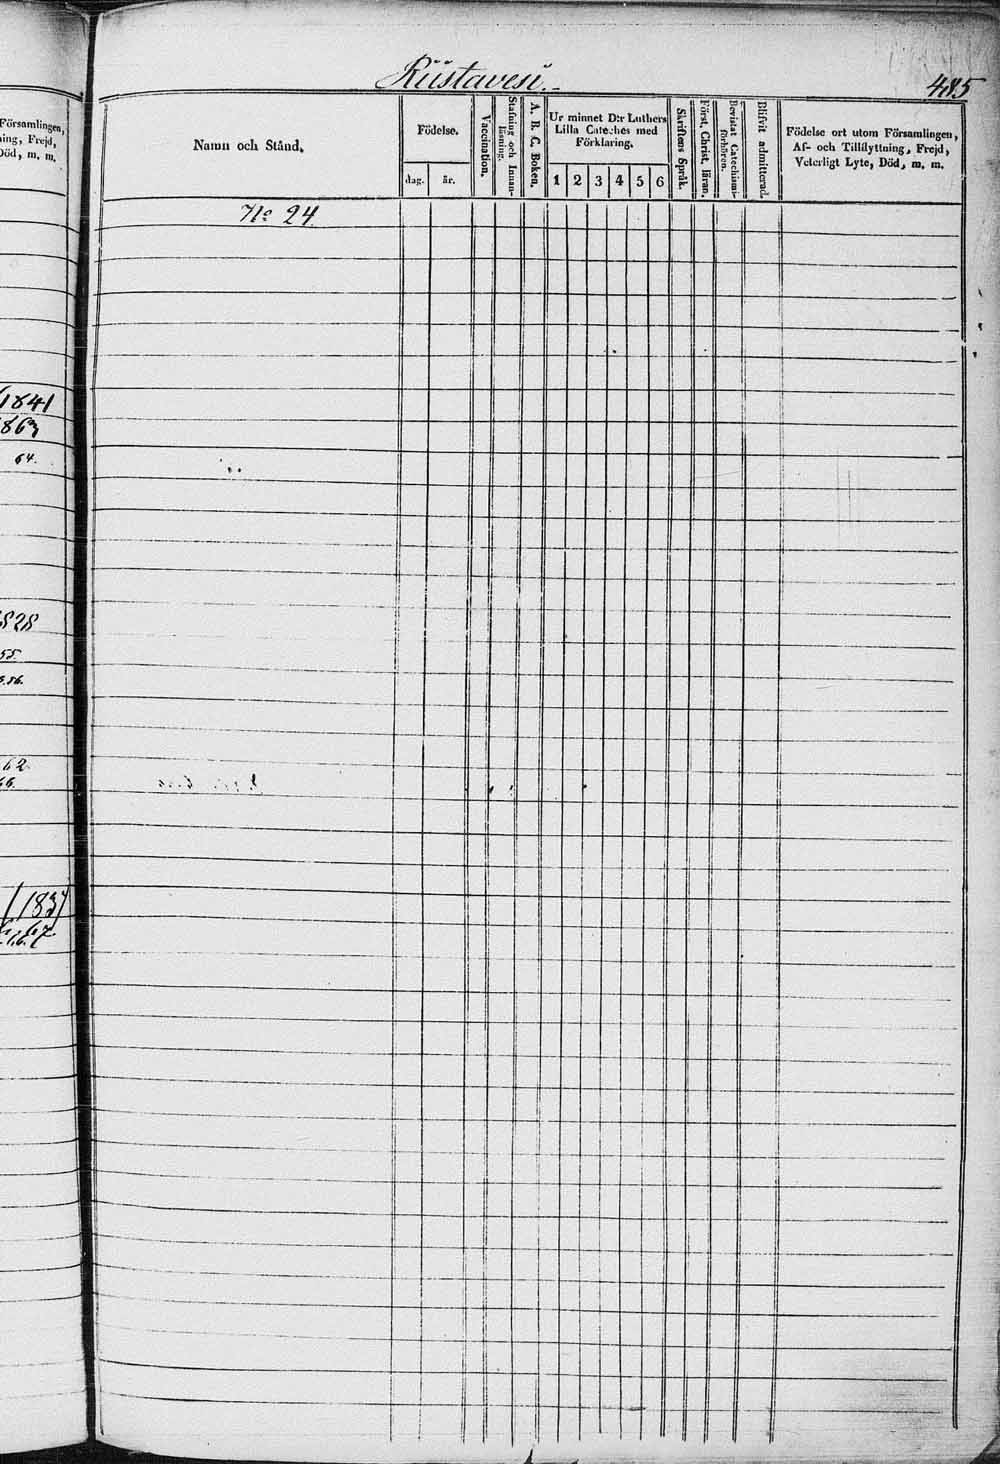 Församlingen,
ning, Frejd,
Död, m. m.
1841
1863
64.
1828
55.
62
66.
1837
Riistavesi.
485
Namn och Stånd.
Födelse.
dag.
år.
Vaccination.
Stafning och Innan-
läsning.
A. B. C. Boken.
Ur minnet D:r Luthers
Lilla Cateches med
Förklaring.
1 2 3 4 5 6
Skriftens Språk.
Först. Christ. läran.
Bevistat Catechismi-
förhören.
Blifvit admitterad.
Födelse ort utom Församlingen,
Af- och Tillflyttning, Frejd,
Veterligt Lyte, Död, m. m.
No 24.